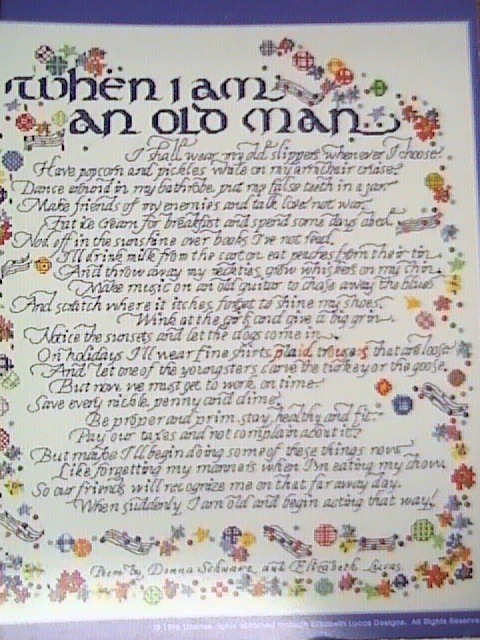 When I am
an old man
I shall wear my old slippers whenever I choose.
Have popcorn and pickles while on my armchair cruise.
Dance around in my bathrobe, put my false teeth in a jar.
Make friends of my enemies and talk love not war.
Eat ice cream for breakfast and spend some days abed.
Nod off in the sunshine over books I've not read.
I'll drink milk from the carton, eat peaches from their tin.
And throw away my neckties, grow whiskers on my chin.
Make music on an old guitar to chase away the blues
And scratch where it itches, forget to shine my shoes.
Wink at the girls and give a big grin.
Notice the sunsets and let the dogs come in.
On holidays I'll wear fine shirts, plaid trousers that are loose
And let one of the youngsters carve the turkey or the goose.
But now, we must get to work on time.
Save every nickle, penny and dime.
Be proper and prim, stay healthy and fit.
Pay our taxes and not complain about it.
But maybe I'll begin doing some of these things now
Like forgetting my manners when I'm eating my chow.
So our friends will recognize me on that far away day.
When suddenly I am old and begin acting that way!
Poem by, Donna Schwarz, art Elizabeth Lucas
© License rights obtained through Elizabeth Lucas Designs. All Rights Reserve